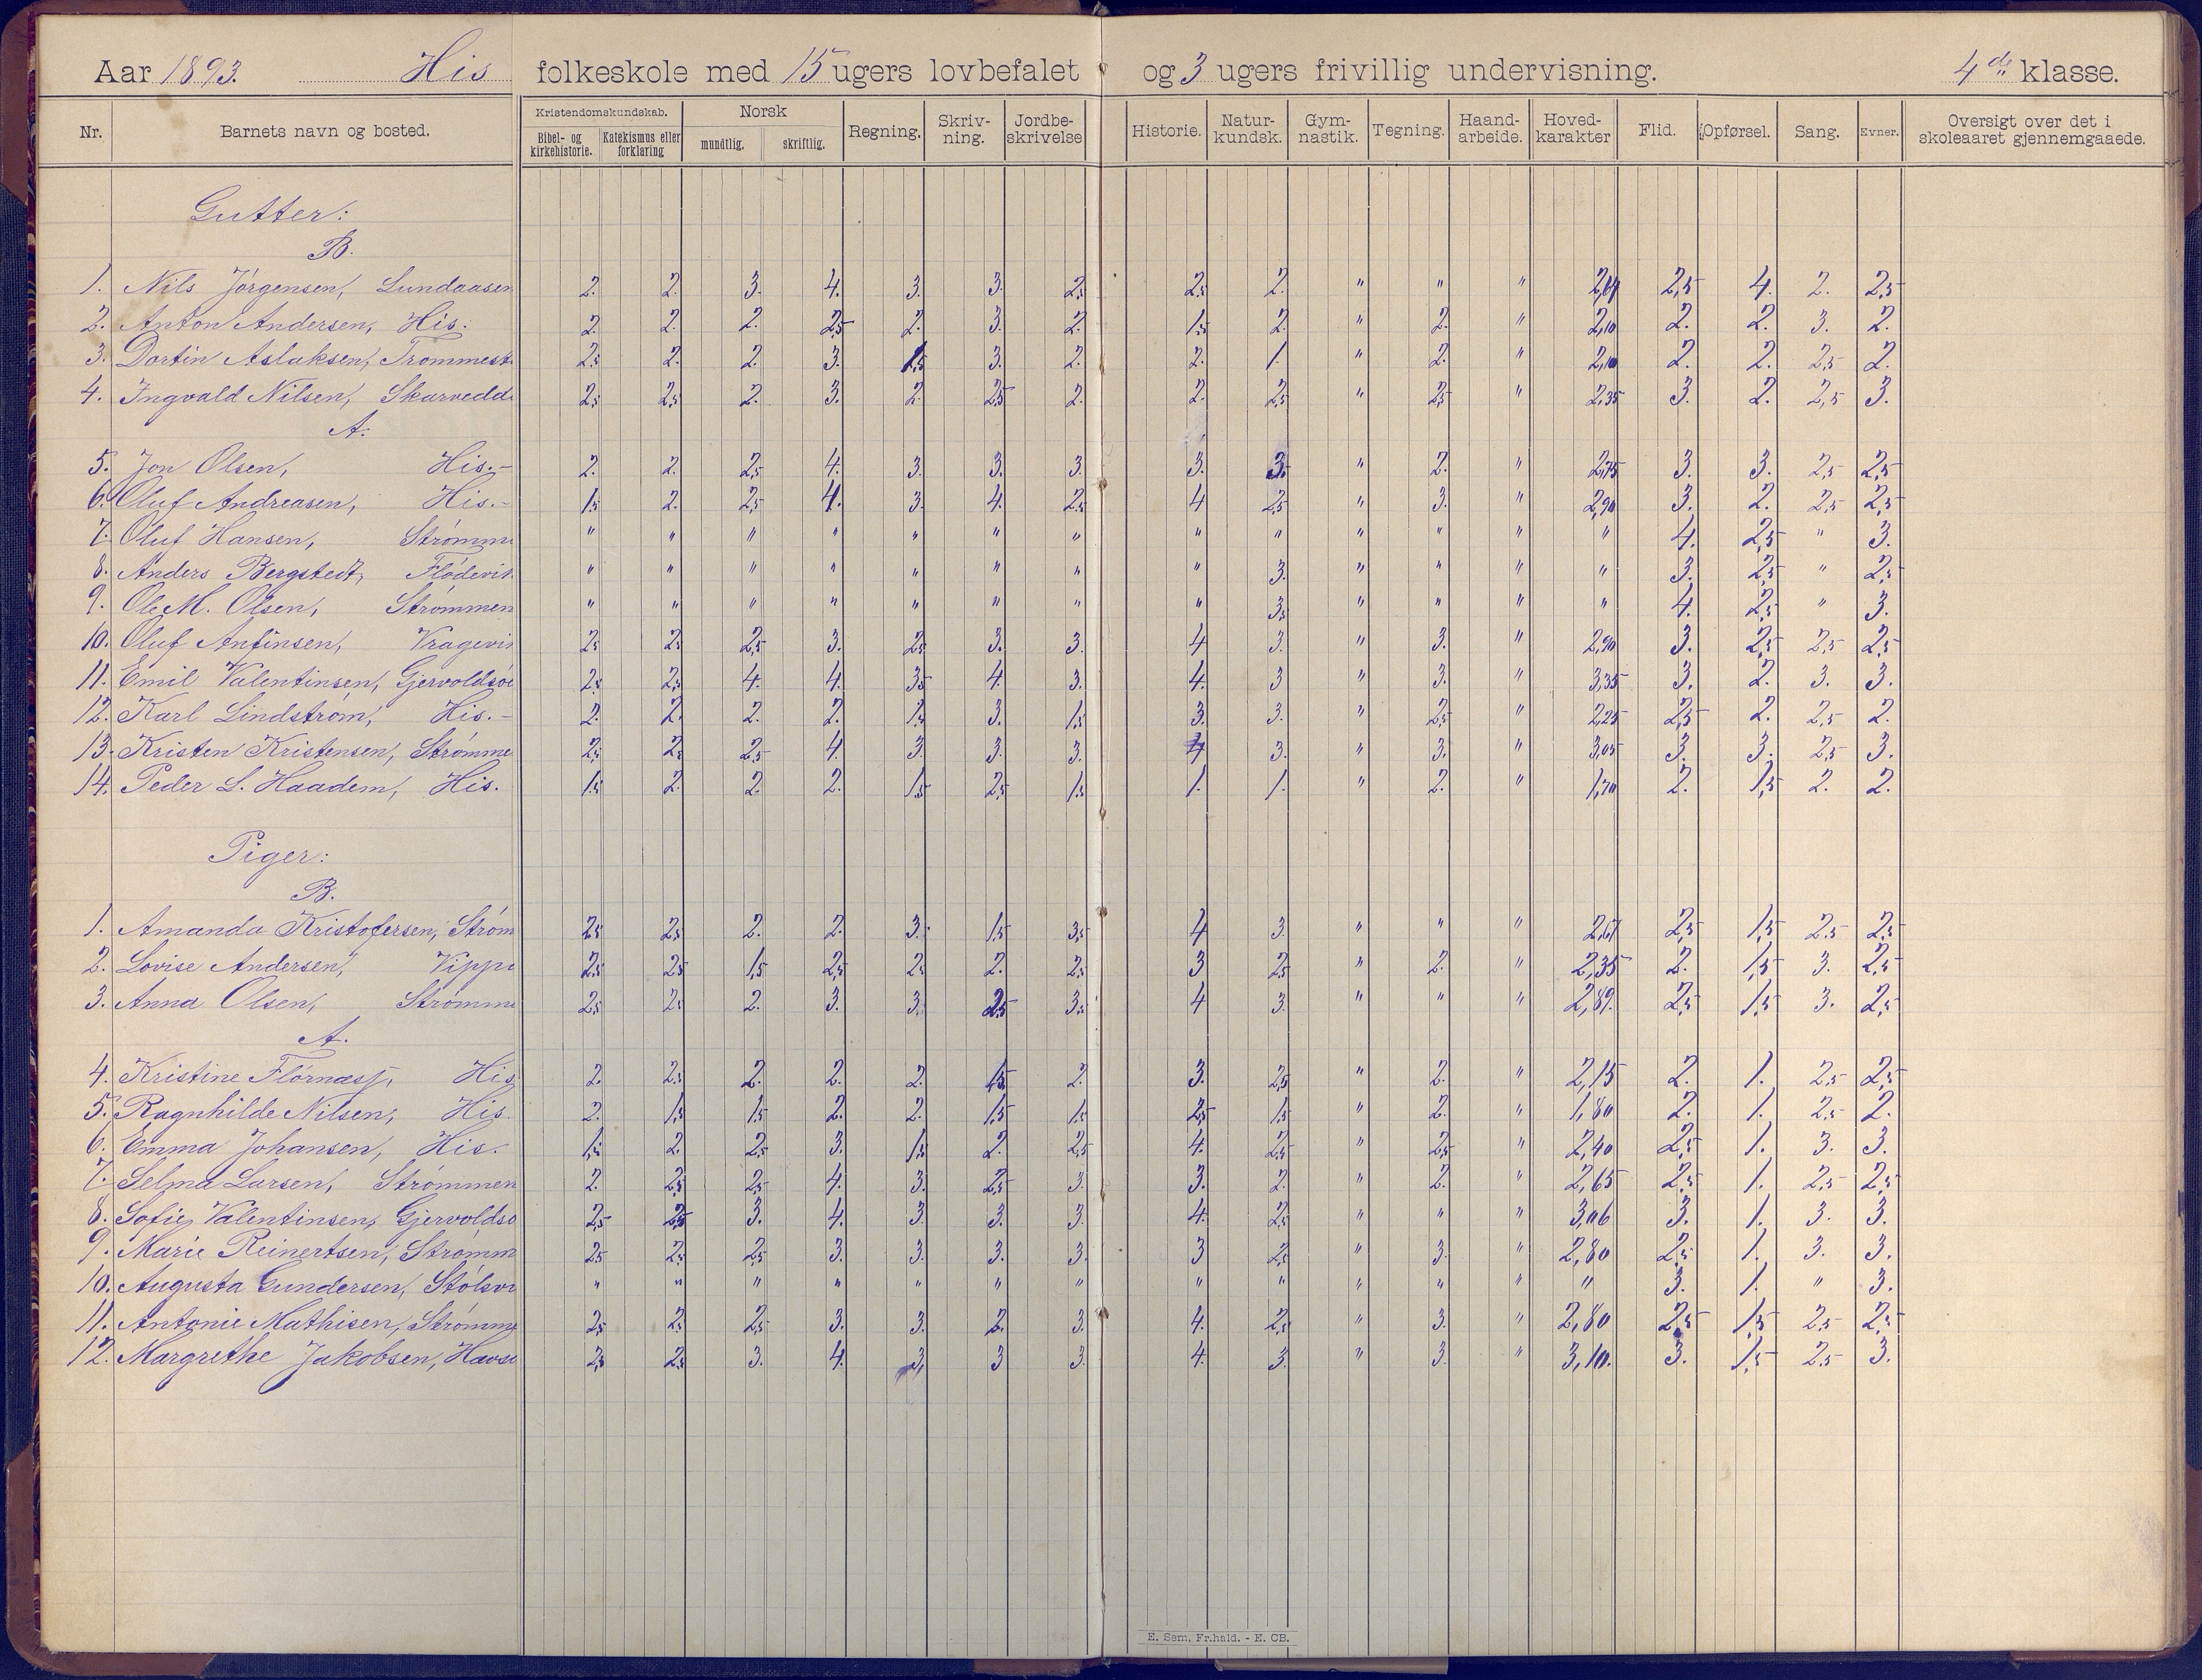 Aar 1893. His folkeskole med 15 ugers lovbefalet og 3 ugers frivillig undervisning. 4de klasse.
Nr. Barnets navn og bosted. Kristendomskundskab. Bibel- og kirkehistorie. Katekismus eller forklaring Norsk mundtlig. skriftlig. Regning. Skriv-ning. Jordbe-skrivelse Historie. Natur-kundsk. Gym-nastik. Tegning. Haand-arbeide. Hoved-karakter Flid. Opførsel. Sang. Evner. Oversigt over det i skoleaaret gjennemgaaede.
Gutter:
B.
1. Nils Jörgensen, Lundaasen 2. 2. 3. 4. 3. 3. 2,5 2,5 2. " " " 2,64 2,5 4. 2. 2,5
2. Anton Andersen, His. 2. 2. 2. 2,5 2. 3. 2. 1,5 2. " 2. " 2,10 2. 2. 3. 2.
3. Dortin Aslaksen, Trommest 2,5 2. 2. 3. 1,5 3. 2. 2. 1. " 2. " 2,10 2. 2. 2,5 2.
4. Ingvald Nilsen, Skarvedd 2,5 2,5 2. 3. 2. 2,5 2. 2. 2,5 " 2,5 " 2,35 3. 2. 2,5 3.
A.
5. Jon Olsen, His.- 2. 2. 2,5 4. 3. 3. 3. 3. 3. " 2. " 2,75 3. 3. 2,5 2,5
6. Oluf Andreasen, His.- 1,5 2. 2,5 4. 3. 4. 2,5 4 2,5 " 3. " 2,90 3. 2. 2,5 2,5
7. Oluf Hansen, Strömm " " " " " " " " " " " " " 4. 2,5 " 3.
8. Anders Bergstedt, Flödevik " " " " " " " " 3. " " " " 3. 2,5 " 2,5
9. Ole M. Olsen, Strömmen " " " " " " " " 3,5 " " " " 4. 2,5 " 3.
10. Oluf Anfinsen, Vragevi 2,5 2,5 2,5 3. 2,5 3. 3. 4 3. " 3. " 2,90 3. 2,5 2,5 2,5
11. Emil Valentinsen, Gjervoldsö 2,5 2,5 4. 4. 3,5 4. 3. 4. 3 " 3. " 3,35 3. 2. 3. 3.
12. Karl Lindström, His.- 2. 2. 2. 2. 1,5 3. 1,5 3. 3. " 2,5 " 2,25 2,5 2. 2,5 2.
13. Kristen Kristensen, Strömme 2,5 2,5 2,5 4. 3. 3. 3. 4 3. " 3. " 3,05 3. 3. 2,5 3.
14. Peder L. Haadem, His. 1,5 2. 2. 2. 1,5 2,5 1,5 1. 1. " 2. " 1,70 2. 1,5 2. 2.
Piger:
B.
1. Amanda Kristofersen, Ström 2,5 2,5 2. 2. 3. 1,5 3,5 4 3. " " " 2,61 2,5 1,5 2,5 2,5
2. Lovise Andersen, Vipp 2,5 2,5 1,5 2,5 2,5 2. 2,5 3 2,5 " 2. " 2,35 2. 1,5 3. 2,5
3. Anna Olsen, Strömm 2,5 2,5 2. 3. 3. 2,5 3,5 4 3. " " " 2,89. 2,5 1,5 3. 2,5
A.
4. Kristine Flörnæsf, His 2. 2,5 2. 2. 2. 1,5 2. 3. 2,5 " 2. " 2,15 2. 1. 2,5 2,5
5. Ragnhilde Nilsen, His. 2. 1,5 1,5 2. 2. 1,5 1,5 2,5 1,5 " 2. " 1,80 2. 1. 2,5 2.
6. Emma Johansen, His. 1,5 2. 2,5 3. 1,5 2. 2,5 4. 2,5 " 2,5 " 2,40 2,5 1. 3. 3.
7. Selma Larsen, Strömmen 2. 2,5 2,5 4. 3. 2,5 3. 3. 2. " 2. " 2,65 2,5 1. 2,5 2,5
8. Sofie Valentinsen, Gjervoldsö 2,5 2,5 3. 4. 3. 3. 3. 4. 2,5 " " " 3,06 3. 1. 3. 3.
9. Marie Reinertsen, Strömm 2,5 2,5 2,5 3. 3. 3. 3. 3 2,5 " 3. " 2,80 2,5 1. 3. 3.
10. Augusta Gundersen, Stölsvi " " " " " " " " " " " " " 3. 1. " 3.
11. Antonie Mathisen, Strömme 2,5 2,5 2,5 3. 3. 2. 3. 4. 2,5 " 3. " 2,80 2,5 1,5 2,5 2,5
12. Margrethe Jakobsen, Havsö 2,5 2,5 3. 4. 3. 3 3. 4. 3. " 3. " 3,10. 3. 1,5 2,5 3.
E. Sem, Fr.hald. - E. CB.